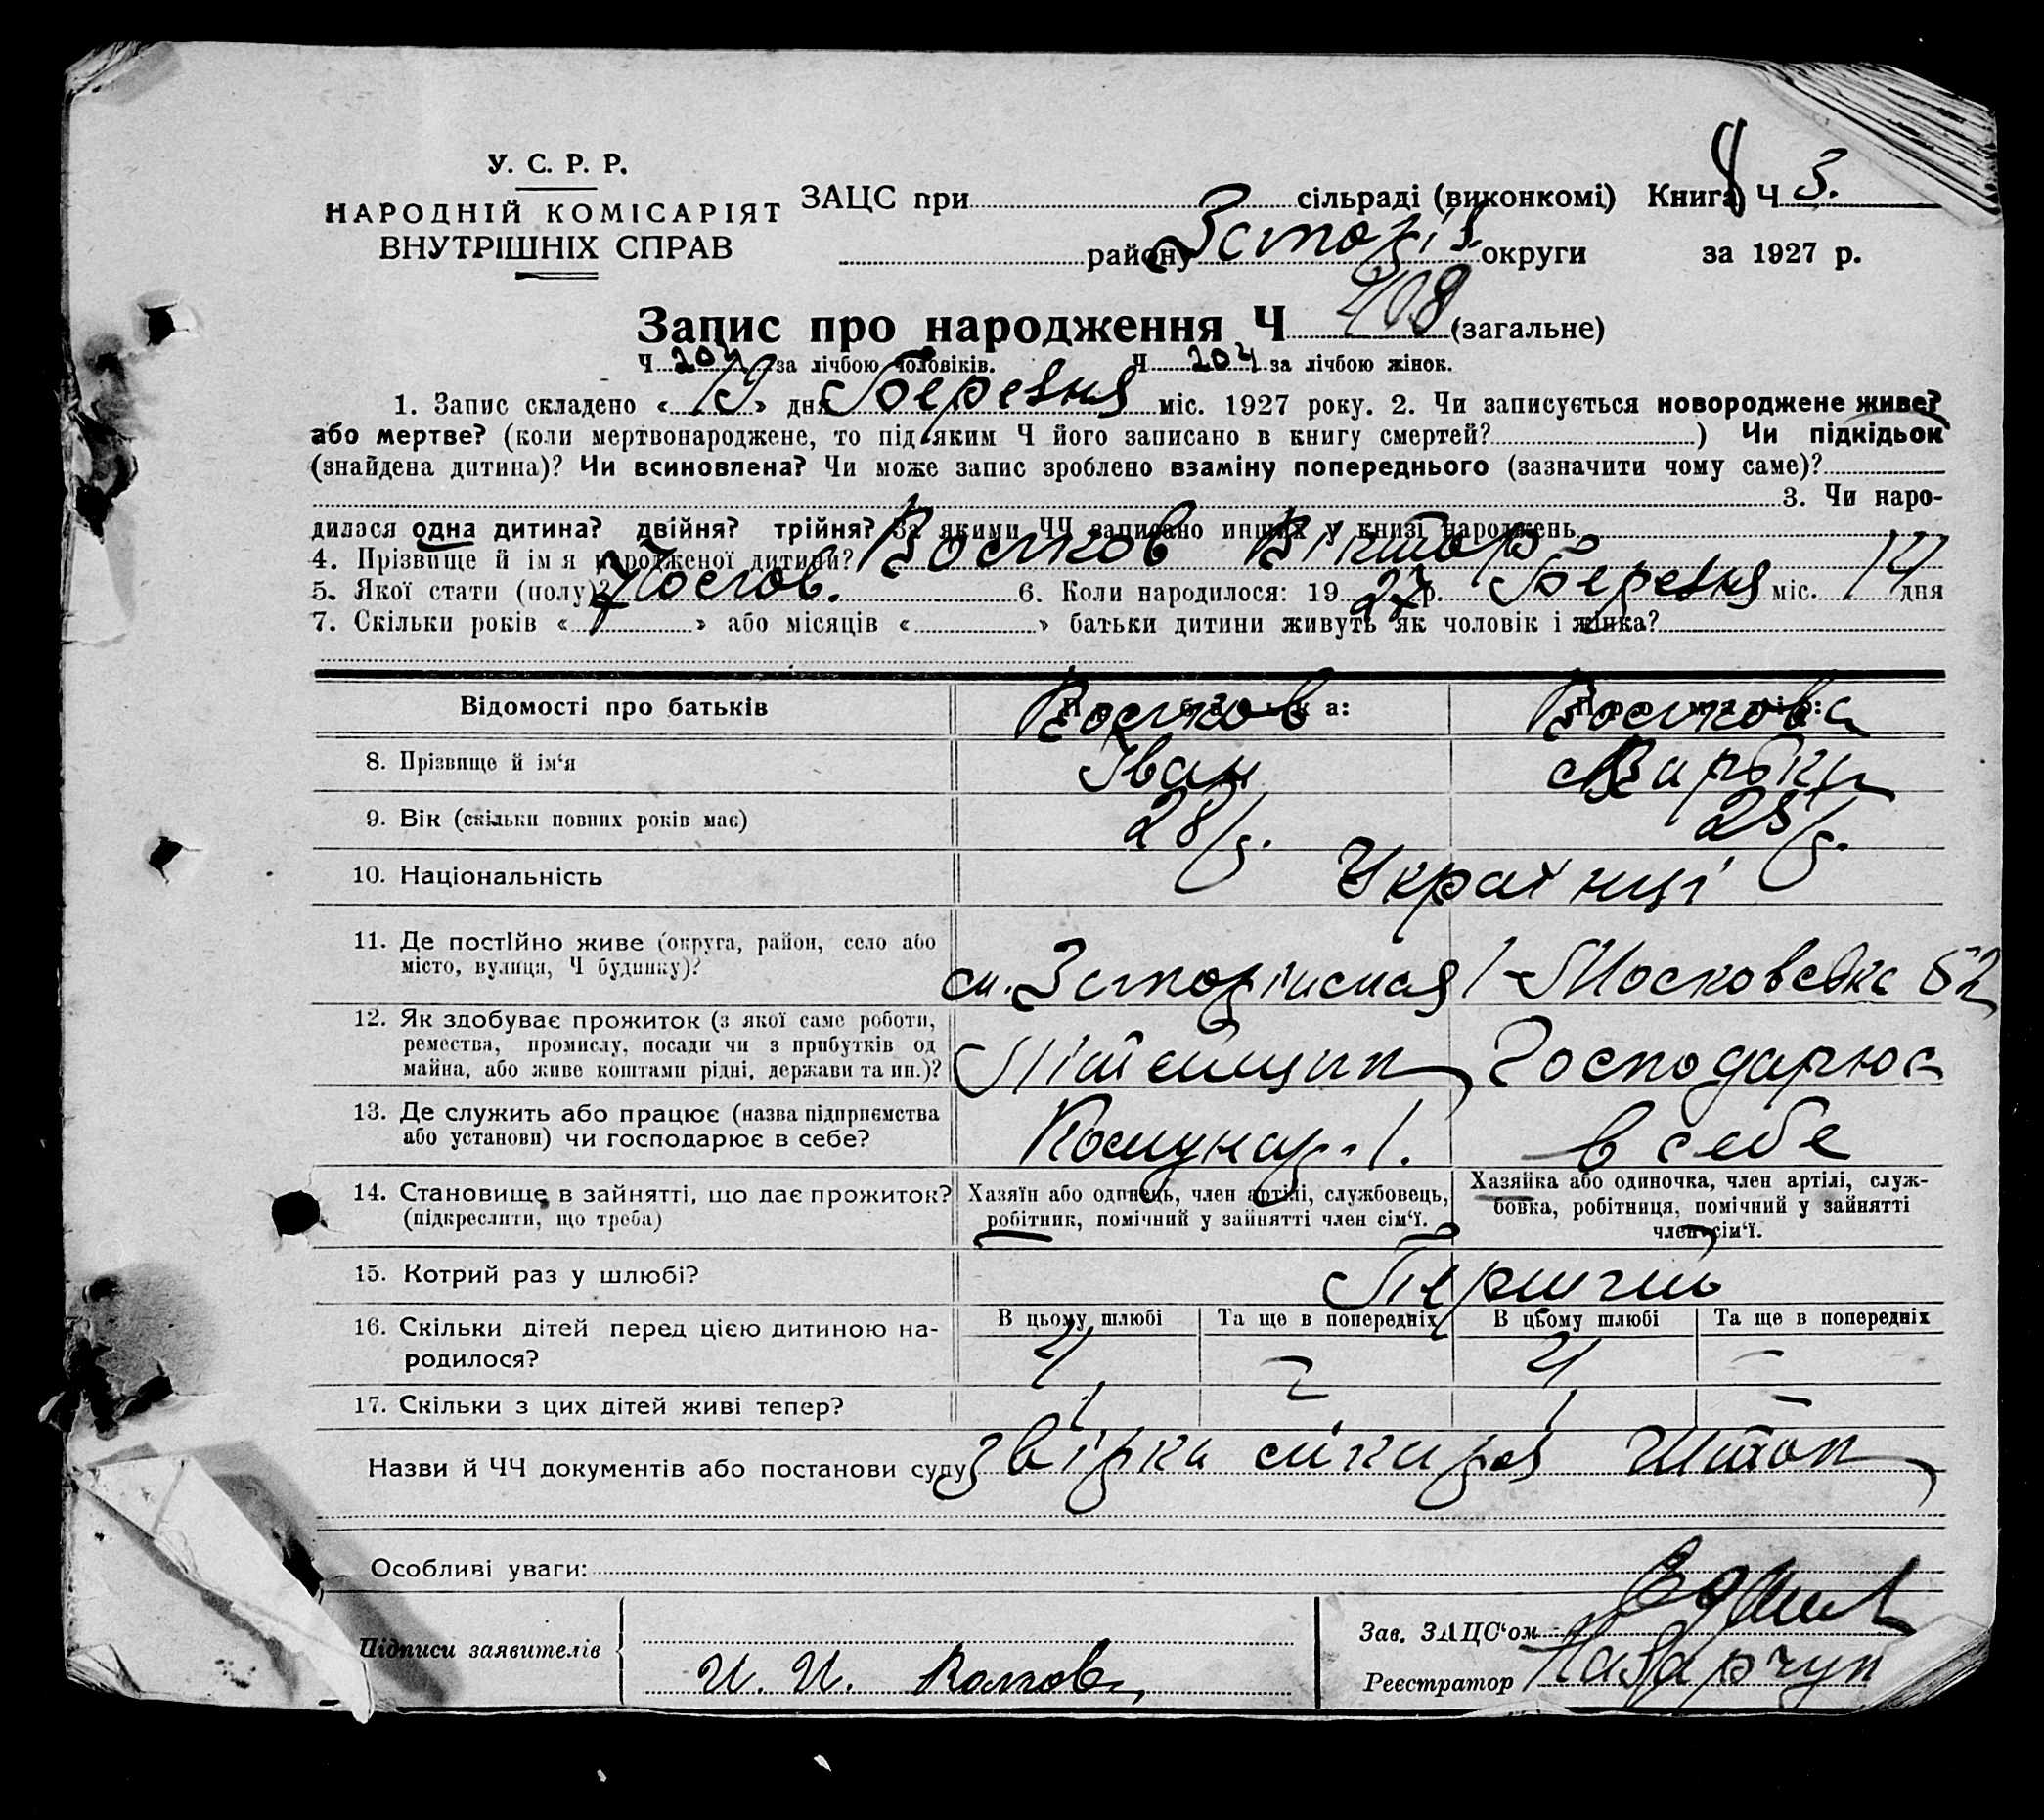 У. С. Р. Р.
НАРОДНІЙ КОМІСАРІЯТ
ВНУТРІШНІХ СПРАВ
ЗАЦС при сільраді (виконкомі) Книга Ч 3.
району округи за 1927 р.
Запис про народження Ч 408 (загальне)
Ч 204 за лічбою чоловіків. Ч 204 за лічбою жінок.
1. Запис складено « 19 » дня Березня міс. 1927 року. 2. Чи записується новороджене живе?
або мертве? (коли мертвонароджене, то під яким Ч його записано в книгу смертей? ) Чи підкідьок
(знайдена дитина)? Чи всиновлена? Чи може запис зроблено взаміну попереднього (зазначити чому саме)?
3. Чи наро-
дилася одна дитина? двійня? трійня? За якими ЧЧ записано инших у книзі народжень
4. Прізвище й ім я народженої дитини? Віктор
5. Якої стати (полу)? Чолов. 6. Коли народилося: 1927 р. Березня міс. 14 дня
7. Скільки років « » або місяців « » батьки дитини живуть як чоловік і жінка?
Відомості про батьків
8. Прізвище й ім‘я Іван
9. Вік (скільки повних років має) 28/
10. Національність Українці
11. Де постійно живе (округа, район, село або
місто, вулиця, Ч будинку)? Московська 52
12. Як здобуває прожиток (з якої саме роботи,
ремества, промислу, посади чи з прибутків од
майна, або живе коштами рідні, держави та ин.)? Господарює
13. Де служить або працює (назва підприємства
або установи) чи господарює в себе? Комунар. 1. в себе
14. Становище в зайнятті, що дає прожиток?
(підкреслити, що треба)
Хазяїн або одинець, член артілі, службовець,
робітник, помічний у зайнятті член сім‘ї.
Хазяйка або одиночка, член артілі, служ-
бовка, робітниця, помічний у зайнятті
член сім‘ї.
15. Котрий раз у шлюбі? Перший
16. Скільки дітей перед цією дитиною на-
родилося?
В цьому шлюбі Та ще в попередніх В цьому шлюбі Та ще в попередніх
4 – 4 –
17. Скільки з цих дітей живі тепер? 1 – 1 –
Назви й ЧЧ документів або постанови суду
Особливі уваги:
Підписи заявителів И. И.
Зав. ЗАЦС‘ом
Реєстратор Назарчук